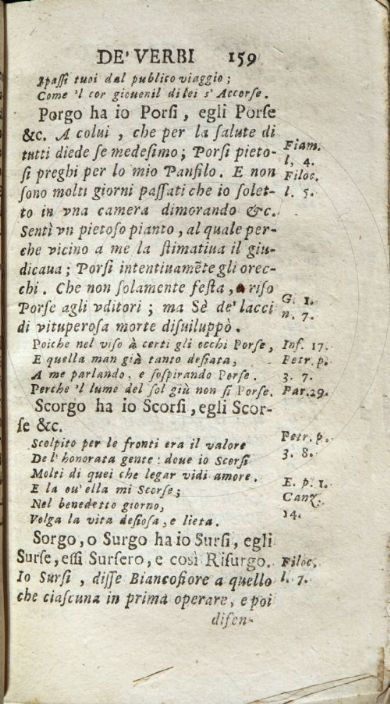 DE' VERBI 159
I passi tuoi dal publico viaggio;
Come 'l cor giouenil di lei s' Accorse.
Porgo ha io Porsi, egli Porse
&c. A colui, che per la salute di
tutti diede se medesimo; Porsi pieto- Fiam.
si preghi per lo mio Panfilo. E non l. 4.
sono molti giorni passati che io solet- Filoc.
to in vna camera dimorando &c. l. 5.
Sentì vn pietoso pianto, al quale per-
che vicino a me la stimatiua il giu-
dicaua; Porsi intentiuamēte gli orec-
chi. Che non solamente festa, e riso
Porse agli vditori; ma Sè de' lacci G. 1.
di vituperosa morte disuiluppò. n. 7.
Poiche nel viso à certi gli occhi Porse, Inf. 17.
E quella man già tanto desiata, Petr. p.
A me parlando, e sospirando Porse. 3. 7.
Perche 'l lume del sol giù non si Porse. Par. 29.
Scorgo ha io Scorsi, egli Scor-
se &c.
Scolpito per le fronti era il valore Petr. p.
De l' honorata gente: doue io Scorsi 3. 8.
Molti di quei che legar vidi amore.
E la ou' ella mi Scorse; E. p. 1.
Nel benedetto giorno, Canz.
Volga la vita desiosa, e lieta. 14.
Sorgo, o Surgo ha io Sursi, egli
Surse, essi Sursero, e così Risurgo. Filoc.
Io Sursi, disse Biancofiore a quello l. 7.
che ciascuna in prima operare, e poi
disen-